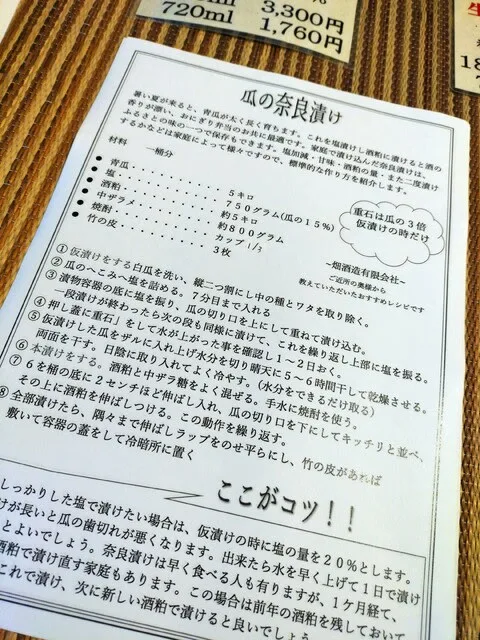 3,300円
720ml 1,760円
瓜の奈良漬け
暑い夏が来ると、青瓜が太く長く育ちます。これを塩漬けし酒粕に漬けると酒の
香りが漂い、おにぎり弁当のお共に最適です。家庭で漬け込んだ奈良漬けは、
ふるさとの味の一つで保存もできます。塩加減・甘味・酒粕の量・また二度漬け
するかなどは家庭によって様々ですので、標準的な作り方を紹介します。
材料 一桶分
● 青瓜・・・・・・・・・・・５キロ
● 塩・・・・・・・・・・・・７５０グラム(瓜の１５％)
● 酒粕・・・・・・・・・・・約５キロ
● 中ザラメ・・・・・・・・・約８００グラム
● 焼酎・・・・・・・・・・・カップ1/3
● 竹の皮・・・・・・・・・・３枚
重石は瓜の３倍
仮漬けの時だけ
~畑酒造有限会社~
ご近所の奥様から
教えていただいたおすすめレシピです
① 仮漬けをする白瓜を洗い、縦二つ割にし中の種とワタを取り除く。
② 瓜のへこみへ塩を詰める。７分目まで入れる
③ 漬物容器の底に塩を振り、瓜の切り口を上にして重ねて漬け込む。
一段漬けが終わったら次の段も同様に漬けて、これを繰り返し上部に塩を振る。
④ 押し蓋に重石」をして水が上がった事を確認し１～２日おく。
⑤ 仮漬けした瓜をザルに入れ上げ水分を切り晴天に５～６時間干して乾燥させる。
両面を干す。日陰に取り入れてよく冷やす。(水分をできるだけ取る)
⑥ 本漬けをする。酒粕と中ザラ糖をよく混ぜる。手水に焼酎を使う。
⑦ ６を桶の底に２センチほど伸ばし入れ、瓜の切り口を下にしてキッチリと並べ、
その上に酒粕を伸ばしつける。この動作を繰り返す。
⑧ 全部漬けたら、隅々まで伸ばしラップをのせ平らにし、竹の皮があれば
敷いて容器の蓋をして冷暗所に置く
ここがコツ！！
しっかりした塩で漬けたい場合は、仮漬けの時に塩の量を２０％とします。
けが長いと瓜の歯切れが悪くなります。出来たら水を早く上げて１日で漬け
とよいでしょう。奈良漬けは早く食べる人も有りますが、１ケ月経て、
酒粕で漬け直す家庭もあります。この場合は前年の酒粕を残しておいて
これで漬け、次に新しい酒粕で漬けると良いでしょう。